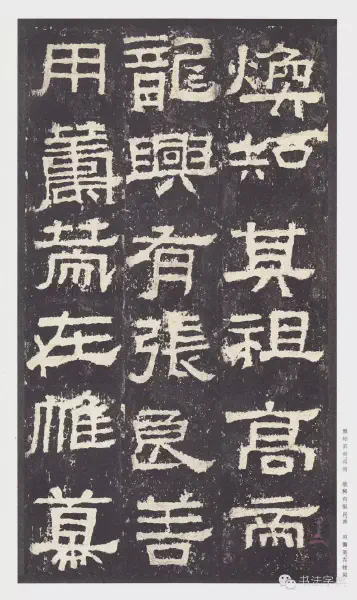 煥知其祖高帝
龍興有張良善
用籌策在帷幕
煥知其祖高帝 龍興有張良善 用籌策在帷幕
书法字